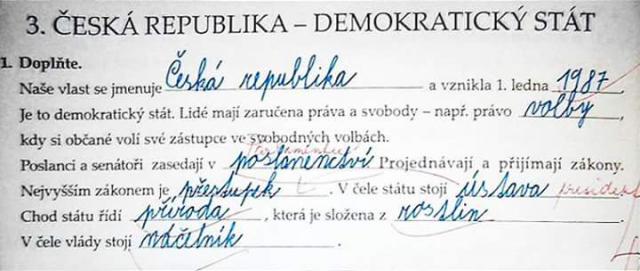 3. ČESKÁ REPUBLIKA – DEMOKRATICKÝ STÁT
1. Doplňte.
Naše vlast se jmenuje Česká republika a vznikla 1. ledna 1987.
Je to demokratický stát. Lidé mají zaručena práva a svobody – např. právo volby,
kdy si občané volí své zástupce ve svobodných volbách.
Poslanci a senátoři zasedají v poslanenctví Projednávají a přijímají zákony.
Nejvyšším zákonem je přestupek. V čele státu stojí ústava president
Chod státu řídí příroda, která je složena z rostlin
V čele vlády stojí náčelník.